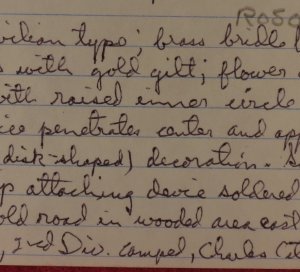 Rose
vilian type; brass bridle
s with gold gilt; flower
with raised inner circle
ice penetrates center and app
(disk-shaped) decoration. S
p attaching device soldered
old road in wooded area east
, 2nd Div. camped, Charles Ci